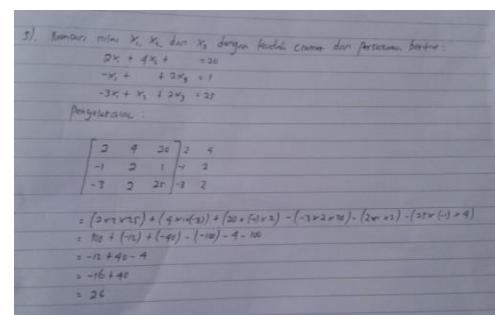 5). Mencari nilai x₁, x₂ dan x₃ dengan kaidah cramer dari persamaan berikut:
2x₁ + 4x₂ + = 20
-x₁ + + 2x₃ = 1
-3x₁ + x₂ + 2x₃ = 25
Penyelesaian :
2 4 20 2 4
-1 2 1 -1 2
-3 2 25 -3 2
= (2×2×25) + (4×1×(-3)) + (20×(-1)×2) - (-3×2×20) - (2×1×2) - (25×(-1)×4)
= 100 + (-12) + (-40) - (-120) - 4 - 100
= -12 + 40 - 4
= -16 + 40
= 26